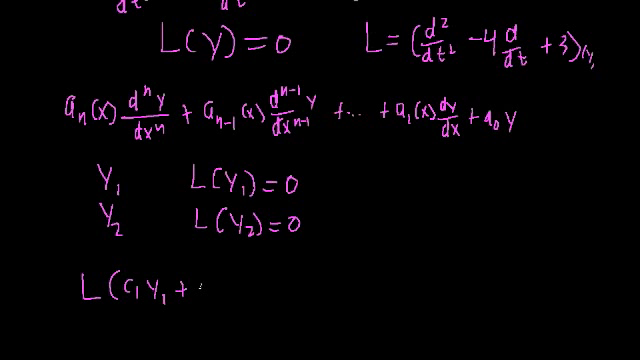 L(y) = 0 L = (d²/dt² - 4 d/dt + 3)(y)
aₙ(x) dⁿy/dxⁿ + aₙ₋₁(x) dⁿ⁻¹y/dxⁿ⁻¹ + ... + a₁(x) dy/dx + a₀ y
y₁ L(y₁) = 0
y₂ L(y₂) = 0
L(c₁y₁ +